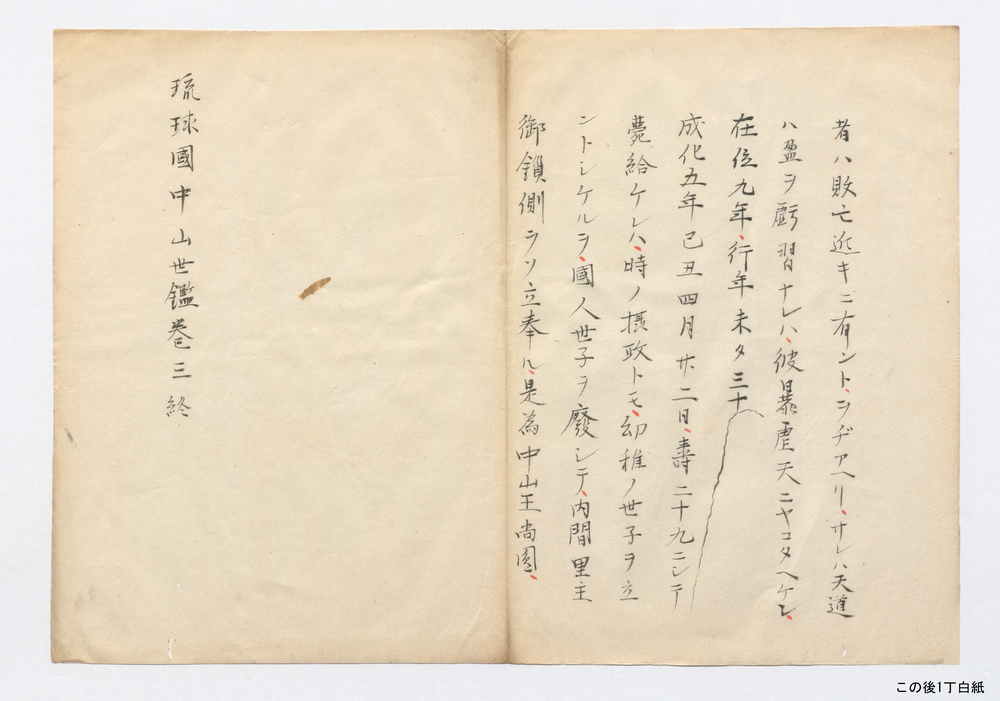 者ハ敗亡近キニ有ント、ヲヂアヘリ、サレハ天道
ハ盈ヲ虧習ナレハ、彼暴虐天ニヤコタヘケン、
在位九年、行年未タ三十
成化五年己丑四月廿二日、壽二十九ニシテ
薨給ケレハ、時ノ摂政トモ、幼稚ノ世子ヲ立
ントシケルヲ、國人世子ヲ廢シテ、内間里主
御鎖側ヲソ立奉ル、是為中山王尚圓、
琉球國中山世鑑巻三終
この後1丁白紙